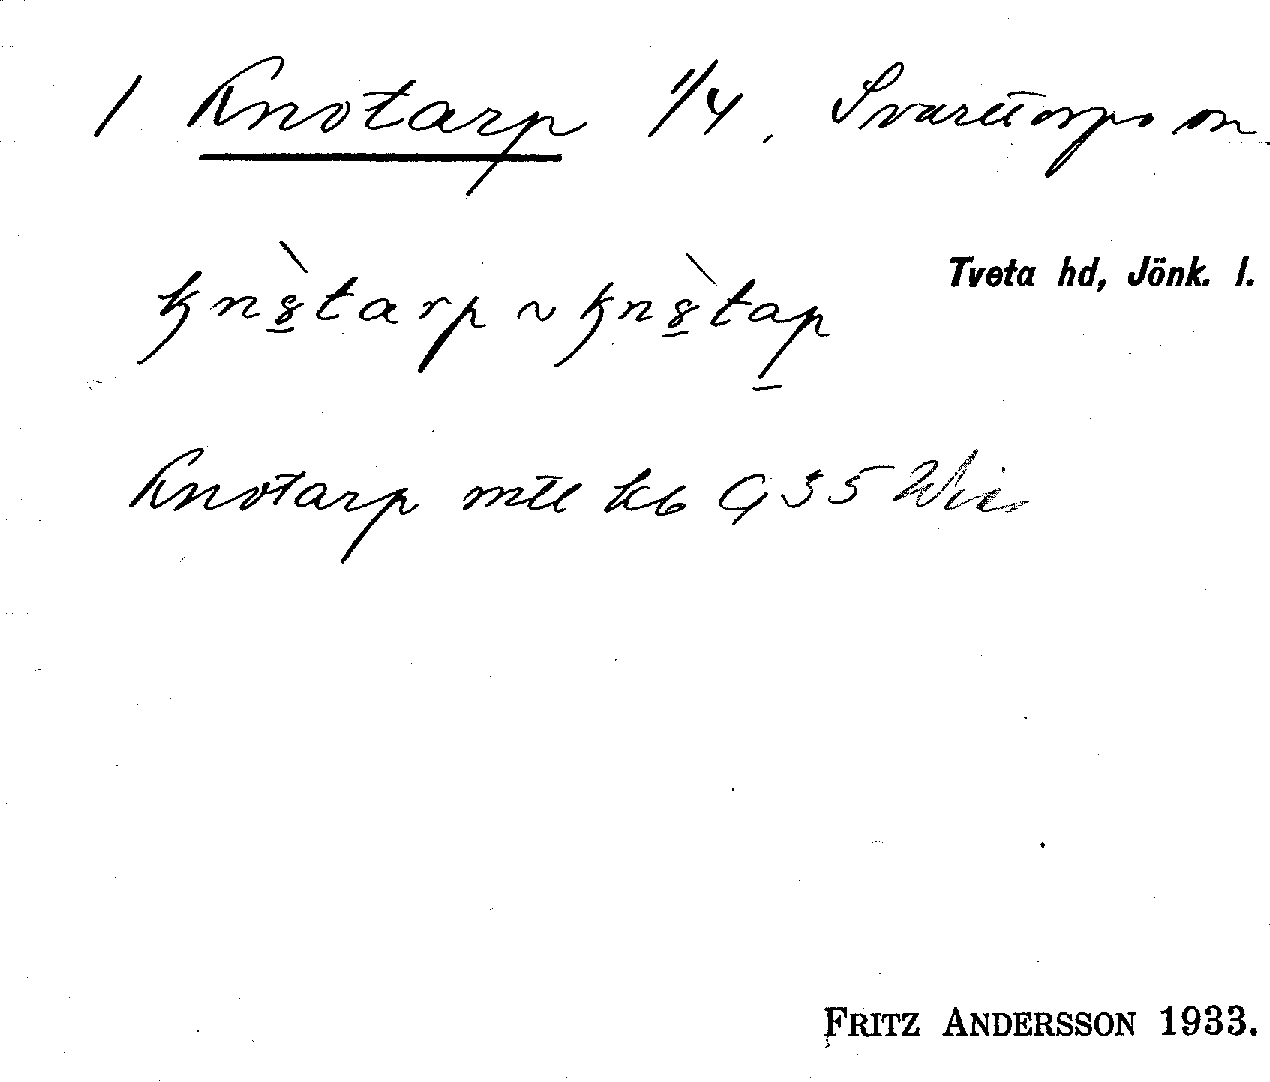 1 Knotarp 1/4, Svarttorps sn
Tveta hd, Jönk. l.
kn8̱̀tarp ~ kn8̱̀tap̱
Knotarp mtl kb G35
FRITZ ANDERSSON 1933.